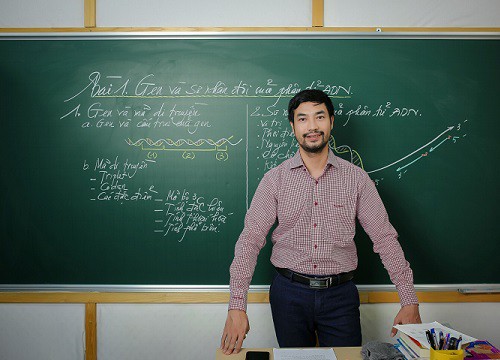 Bài 1. Gen và sự nhân đôi của phân tử ADN.
1. Gen và mã di truyền
a. Gen và cấu trúc của gen
(1) (2) (3)
b. Mã di truyền
- Triplet
- Codon
- Các đặc điểm
- Mã bộ 3
- Tính đặc hiệu
- Tính thoái hóa
- Tính phổ biến.
2. S
phân tử ADN.
Vị trí
Thời điểm
Nguyên
3'
5'
5'